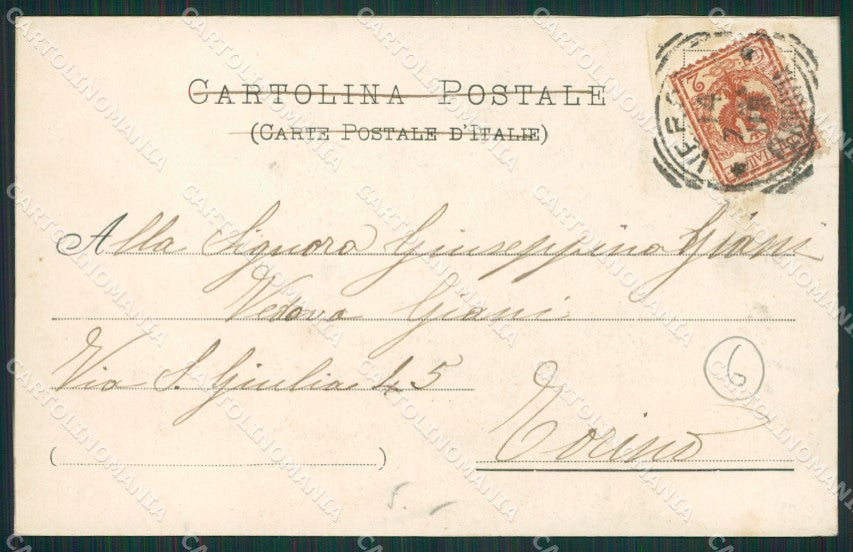 CARTOLINA POSTALE
(CARTE POSTALE D'ITALIE)
Alla Signora Giuseppina Giani
Vedova Giani
Via S. Giulia 45
6
Torino
CARTOLINOMANIA